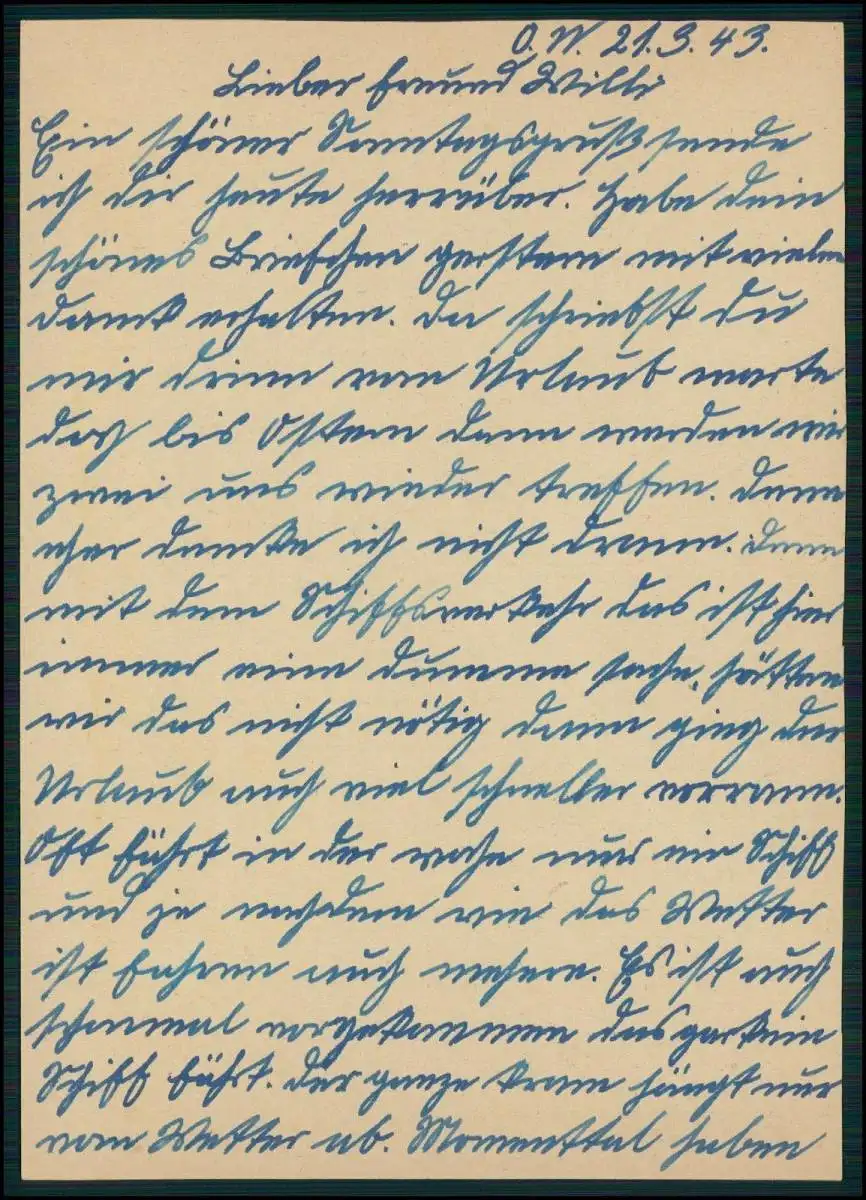 O.W. 21.3.43.
Lieber Freund Willi
Ein schöner Sonntagsgruß sende
ich dir heute herrüber. Habe dein
schönes Briefchen gerstern mit vielen
dank erhalten. Da schriebst du
mir drinn vom Urlaub warte
doch bis Ostern dann werden wir
zwei uns wieder treffen. Denn
eher denke ich nicht drann. Denn
mit dem Schiffsverkehr das ist hier
immer eine dumme sache, hätten
wir das nicht nötig dann ging der
Urlaub auch viel schneller vorrann.
Oft fährt in der woche nur ein Schiff
und je nachdem wie das Wetter
ist fahren auch mehere. Es ist auch
schonmal vorgekommen das garkein
Schiff fährt. Der ganze kram hängt nur
vom Wetter ab. Momenttal haben